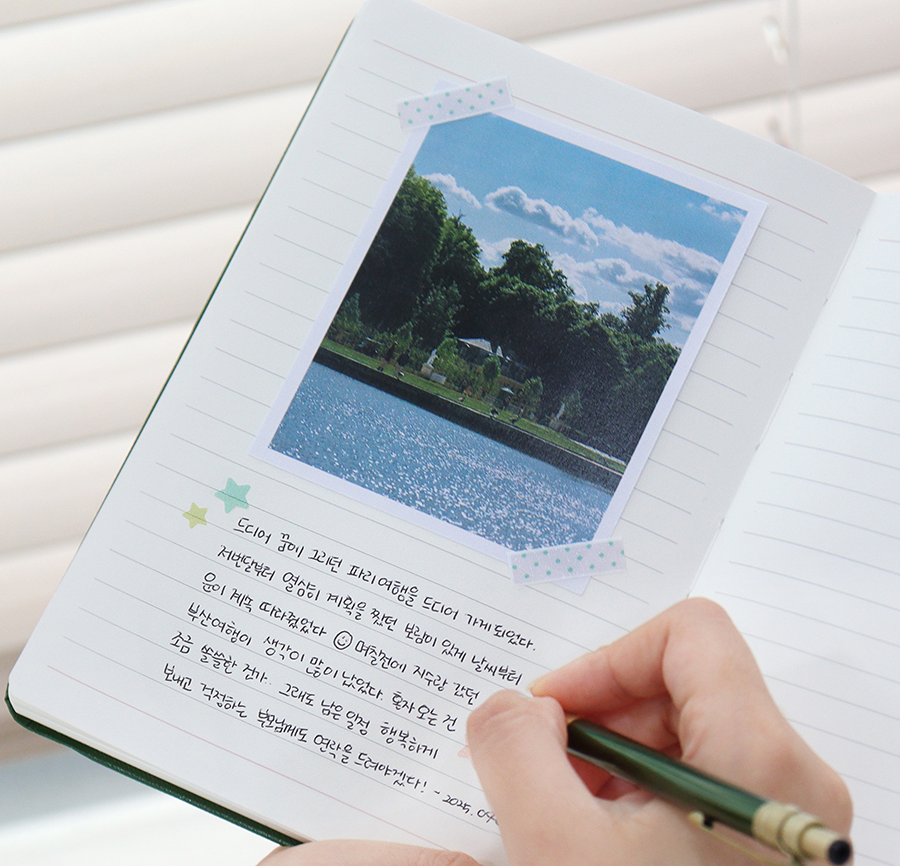 드디어 꿈에 그리던 파리여행을 드디어 가게되었다.
저번달부터 열심히 계획을 짰던 보람이 있게 날씨부터
운이 계속 따라줬었다 ☺ 며칠전에 지수랑 갔던
부산여행이 생각이 많이 났었다. 혼자오는건
조금 쓸쓸한 건가. 그래도 남은일정 행복하게
보내고 걱정하는 부모님께도 연락을 드려야겠다! - 2025.04